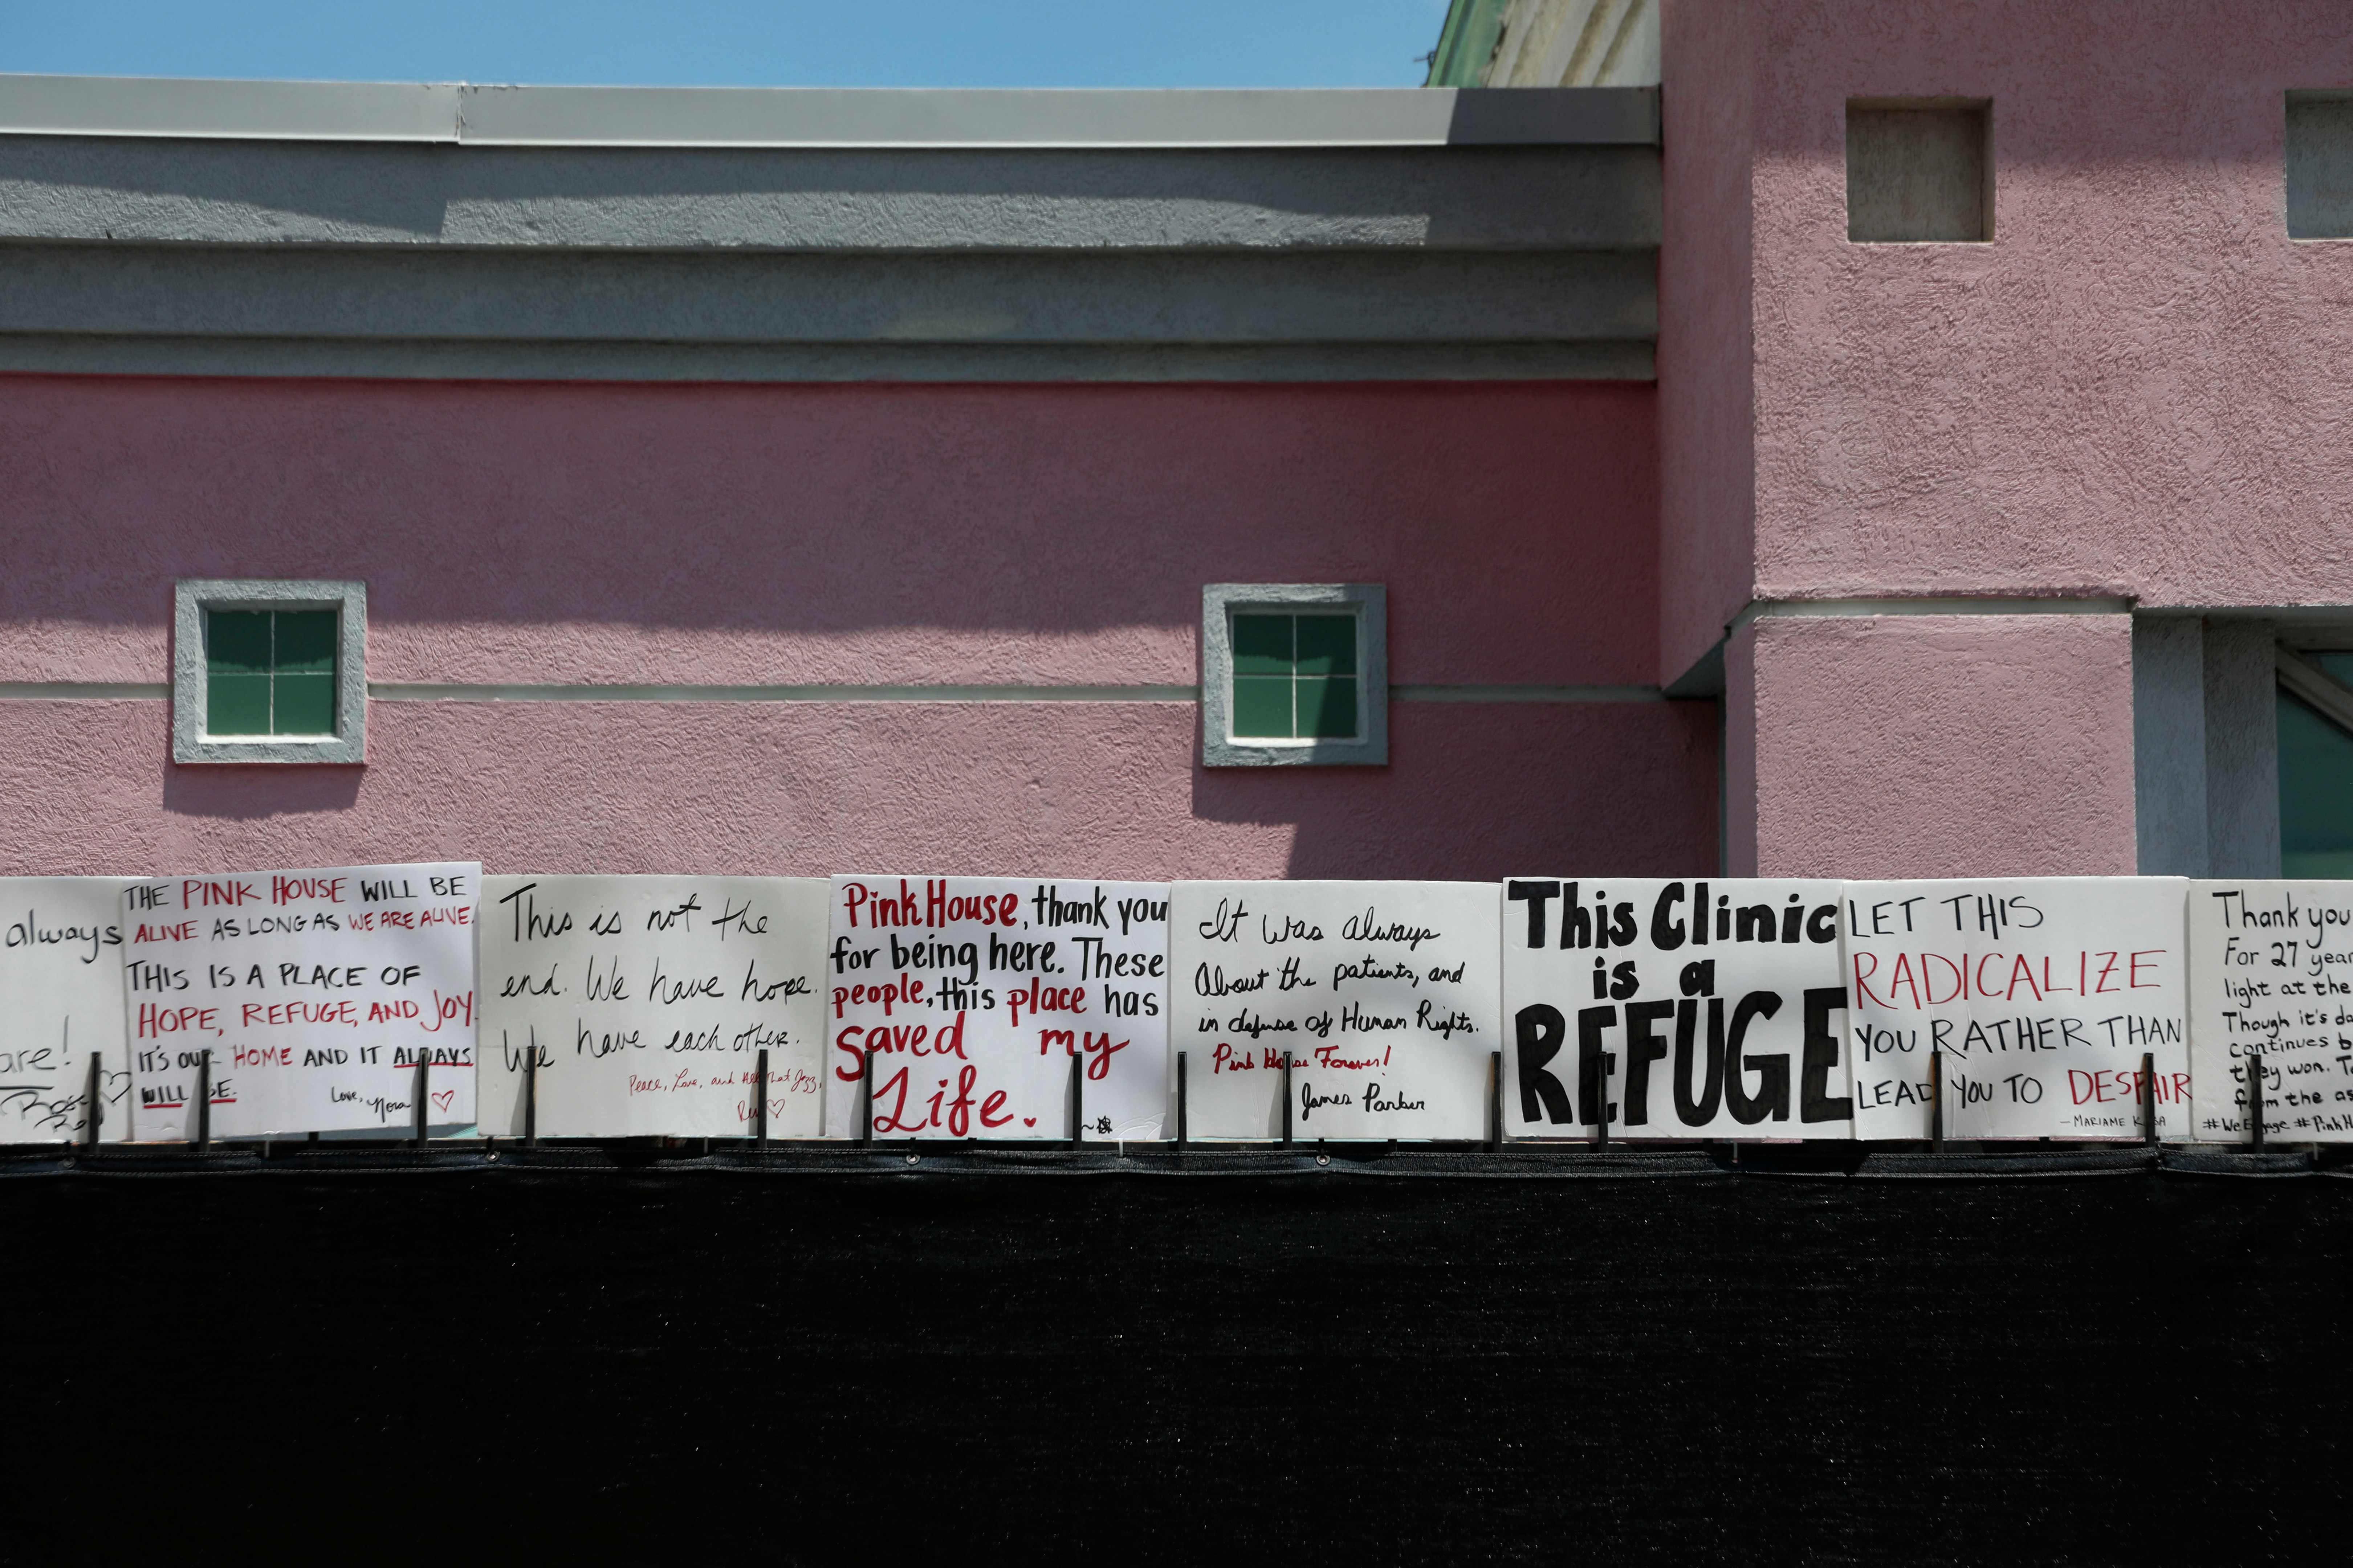 always
are!
THE PINK HOUSE WILL BE
ALIVE AS LONG AS WE ARE ALIVE.
THIS IS A PLACE OF
HOPE, REFUGE, AND JOY.
IT'S OUR HOME AND IT ALWAYS
WILL BE.
Love, Nora
This is not the
end. We have hope.
We have each other.
Peace, Love, and All that Jazz,
Pink House, thank you
for being here. These
people, this place has
saved my
Life.
It was always
About the patients, and
in defense of Human Rights.
Pink House Forever!
James Parker
This Clinic
is a
REFUGE
LET THIS
RADICALIZE
YOU RATHER THAN
LEAD YOU TO DESPAIR
— MARIAME KABA
Thank you
For 27 year
light at the
Though it's da
continues b
they won. T
from the as
#WeEngage #PinkH